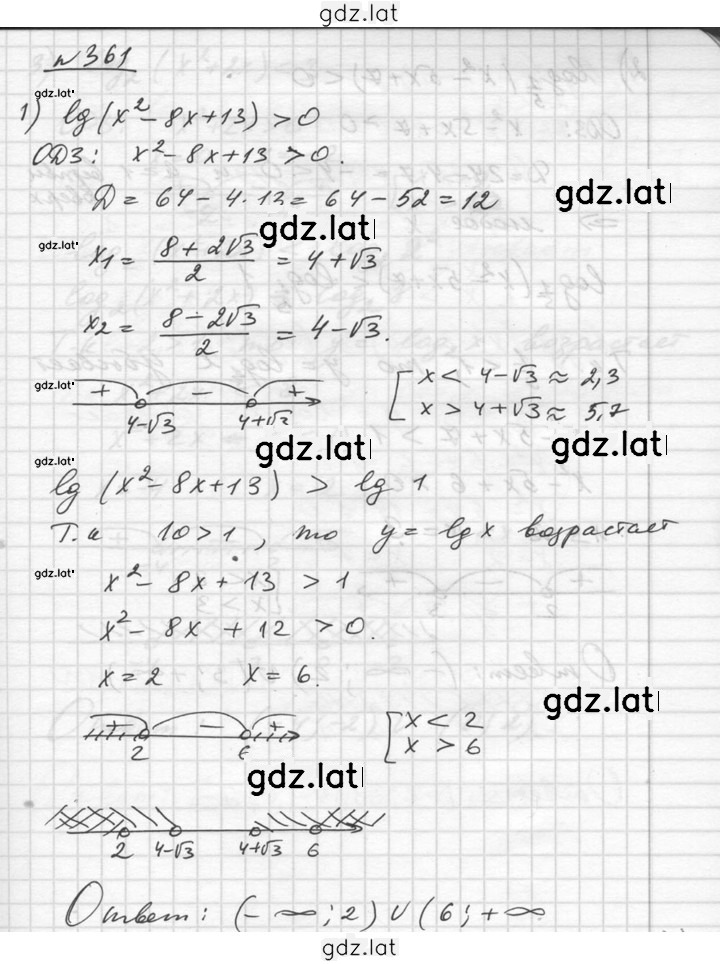 gdz.lat
№361
gdz.lat
1) lg(x² - 8x + 13) > 0
ОДЗ: x² - 8x + 13 > 0.
Д = 64 - 4·13 = 64 - 52 = 12
gdz.lat
gdz.lat
gdz.lat
x₁ = (8 + 2√3)/2 = 4 + √3
x₂ = (8 - 2√3)/2 = 4 - √3.
gdz.lat
+ - +
4-√3 4+√3
[ x < 4-√3 ≈ 2,3
x > 4+√3 ≈ 5,7
gdz.lat
gdz.lat
gdz.lat
lg (x² - 8x + 13) > lg 1
Т.к 10 > 1, то y = lg x возрастает
gdz.lat
x² - 8x + 13 > 1
x² - 8x + 12 > 0.
x = 2 x = 6.
gdz.lat
+ - +
2 6
[ x < 2
x > 6
gdz.lat
2 4-√3 4+√3 6
Ответ: (-∞; 2) ∪ (6; +∞
gdz.lat